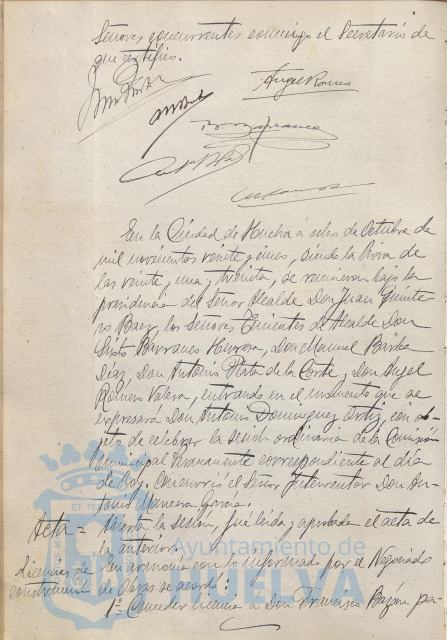 Señores concurrentes conmigo el Secretario de
que certifico.
Angel Romeu
En la Ciudad de Huelva á ocho de Octubre de
mil novecientos veinte y cinco, siendo la hora de
las veinte, una, treinta, se reunieron bajo la
presidencia del Señor Alcalde Don Juan Quinte-
ro Baez, los Señores Tenientes de Alcalde Don
Sixto Barranco Herrera, Don Manuel Barba
Díaz, Don Antonio Plata de la Corte y Don Angel
Romeu Valera, entrando en el momento que se
expresará Don Antonio Dominguez Ortiz, con ob-
jeto de celebrar la sesión ordinaria de la Comisión
Municipal Permanente correspondiente al día
de hoy. Concurrió el Señor Interventor Don An-
tonio García.
Acta = Abierta la sesión, fué leida y aprobada el acta de
la anterior.
Licencias de construcción En armonia con lo informado por el Negociado
de Obras se acordó:
1º Conceder licencia a Don Francisco Bazán pa-
Ayuntamiento de
HUELVA